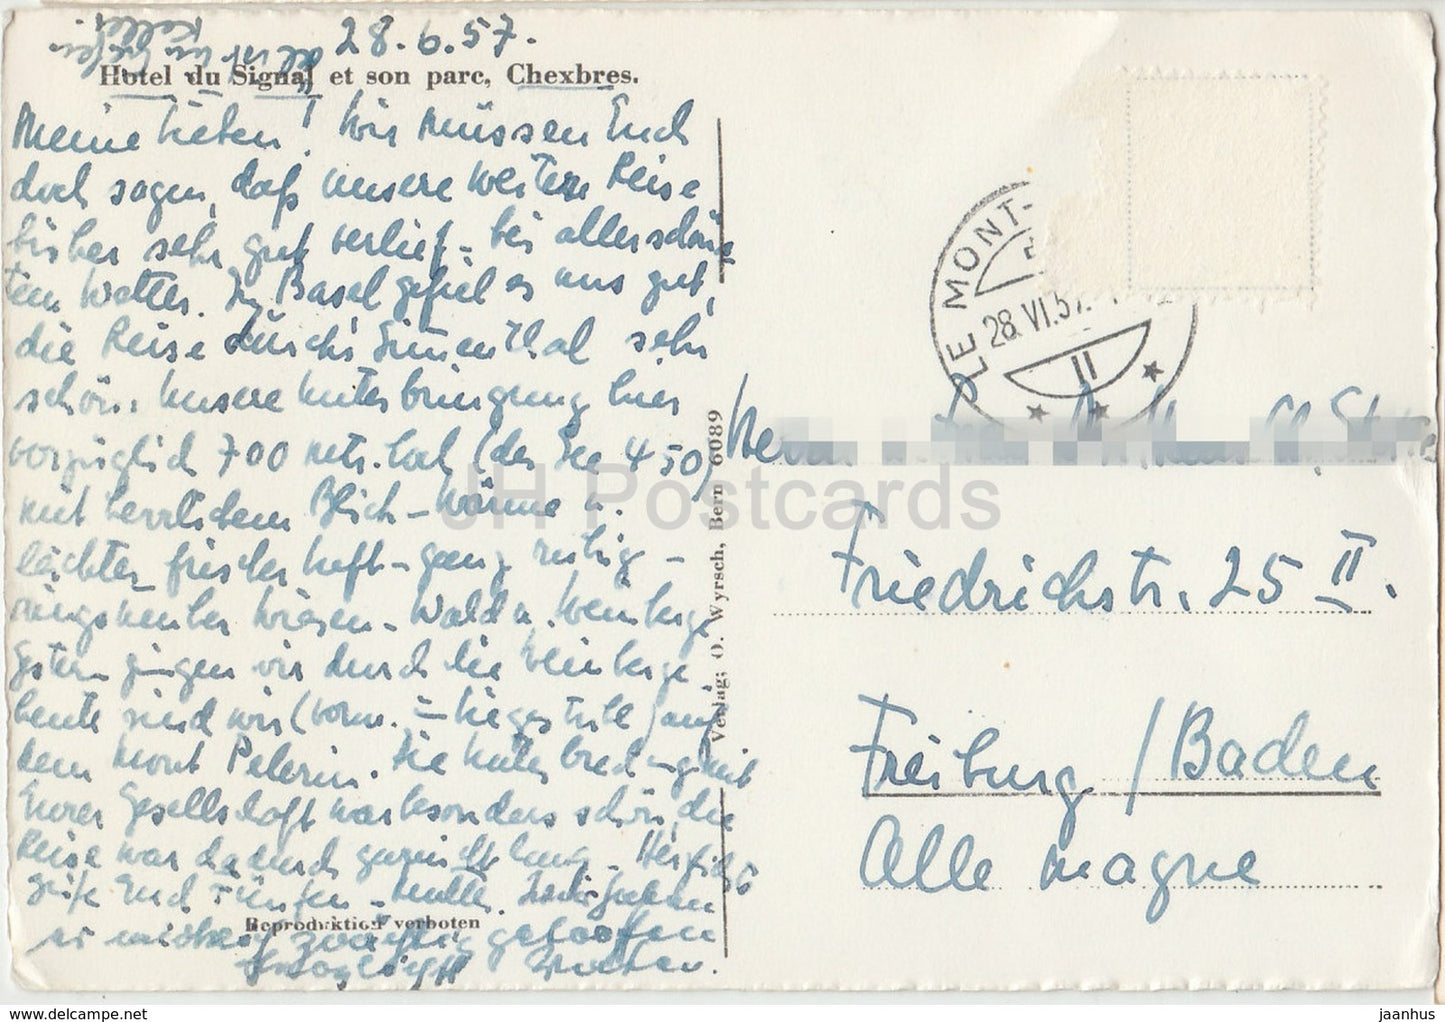 28.6.57.
Keller.
Hotel du Signal et son parc, Chexbres.
Meine Lieben! Wir müssen Euch
doch sagen, daß unsere weitere Reise
bisher sehr gut verlief – bei allerschöns-
tem Wetter. In Basel gefiel es uns gut,
die Reise durchs Simmenthal sehr
schön. Unsere Unterbringung hier
vorzüglich 700 mtr. hoch (der See 450)
mit herrlichem Blick – Wärme u.
leichter frischer Luft – ganz ruhig –
ringsherum Wiesen – Wald u. Weinberge
Gestern gingen wir durch die Weinberge
heute sind wir (vorm. – Liegestuhl) auf
dem Mont Pelerin. Die Unterbrechung mit
Eurer Gesellschaft war besonders schön, die
Reise war dadurch garnicht lang – Herzlichst
grüße Euch Fünfen – Mutter.
Reproduktion verboten
Verlag: O. Wyrsch, Bern 6089
LE MONT-
28. VI. 57.
II
Friedrichstr. 25 II.
Freiburg / Baden
Allemagne
JH Postcards
www.delcampe.net
jaanhus